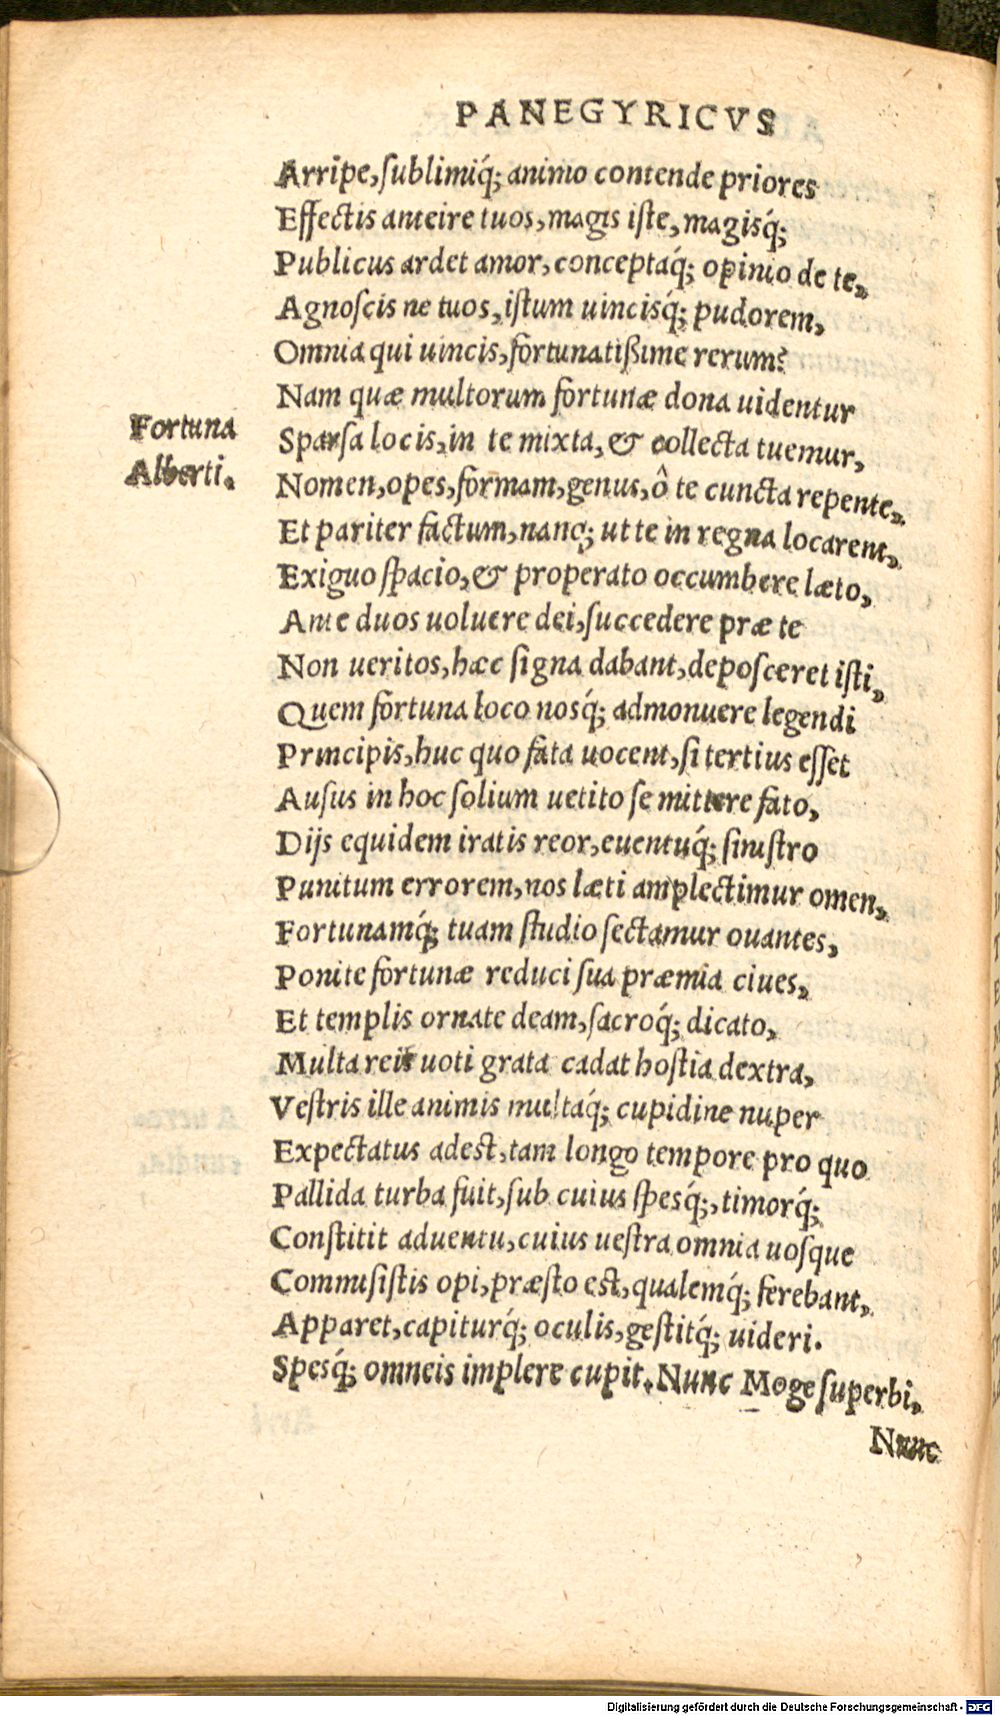 PANEGYRICVS
Arripe, sublimiq́; animo contende priores
Effectis anteire tuos, magis iste, magisq́;
Publicus ardet amor, conceptaq́; opinio de te,
Agnoscis ne tuos, istum uincisq́; pudorem,
Omnia qui uincis, fortunatißime rerum?
Nam quæ multorum fortunæ dona uidentur
Fortuna
Alberti.
Sparsa locis, in te mixta, & collecta tuemur,
Nomen, opes, formam, genus, ô te cuncta repente,
Et pariter factum, nanq; ut te in regna locarent,
Exiguo spacio, & properato occumbere læto,
Ante duos uoluere dei, succedere præ te
Non ueritos, hæc signa dabant, deposceret isti,
Quem fortuna loco nosq́; admonuere legendi
Principis, huc quo fata uocent, si tertius esset
Ausus in hoc solium uetito se mittere fato,
Dijs equidem iratis reor, euentuq́; sinistro
Punitum errorem, nos læti amplectimur omen,
Fortunamq́; tuam studio sectamur ouantes,
Ponite fortunæ reduci sua præmia ciues,
Et templis ornate deam, sacroq́; dicato,
Multa reis uoti grata cadat hostia dextra,
Vestris ille animis multaq́; cupidine nuper
Expectatus adest, tam longo tempore pro quo
Pallida turba fuit, sub cuius spesq́;, timorq́;
Constitit aduentu, cuius uestra omnia uosque
Commisistis opi, præsto est, qualemq́; ferebant,
Apparet, capiturq́; oculis, gestitq́; uideri.
Spesq́; omneis implere cupit. Nunc Moge superbi,
Nunc
Digitalisierung gefördert durch die Deutsche Forschungsgemeinschaft - DFG